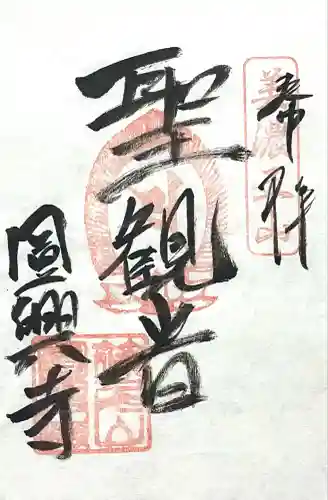 奉拝
聖観音
圓興寺